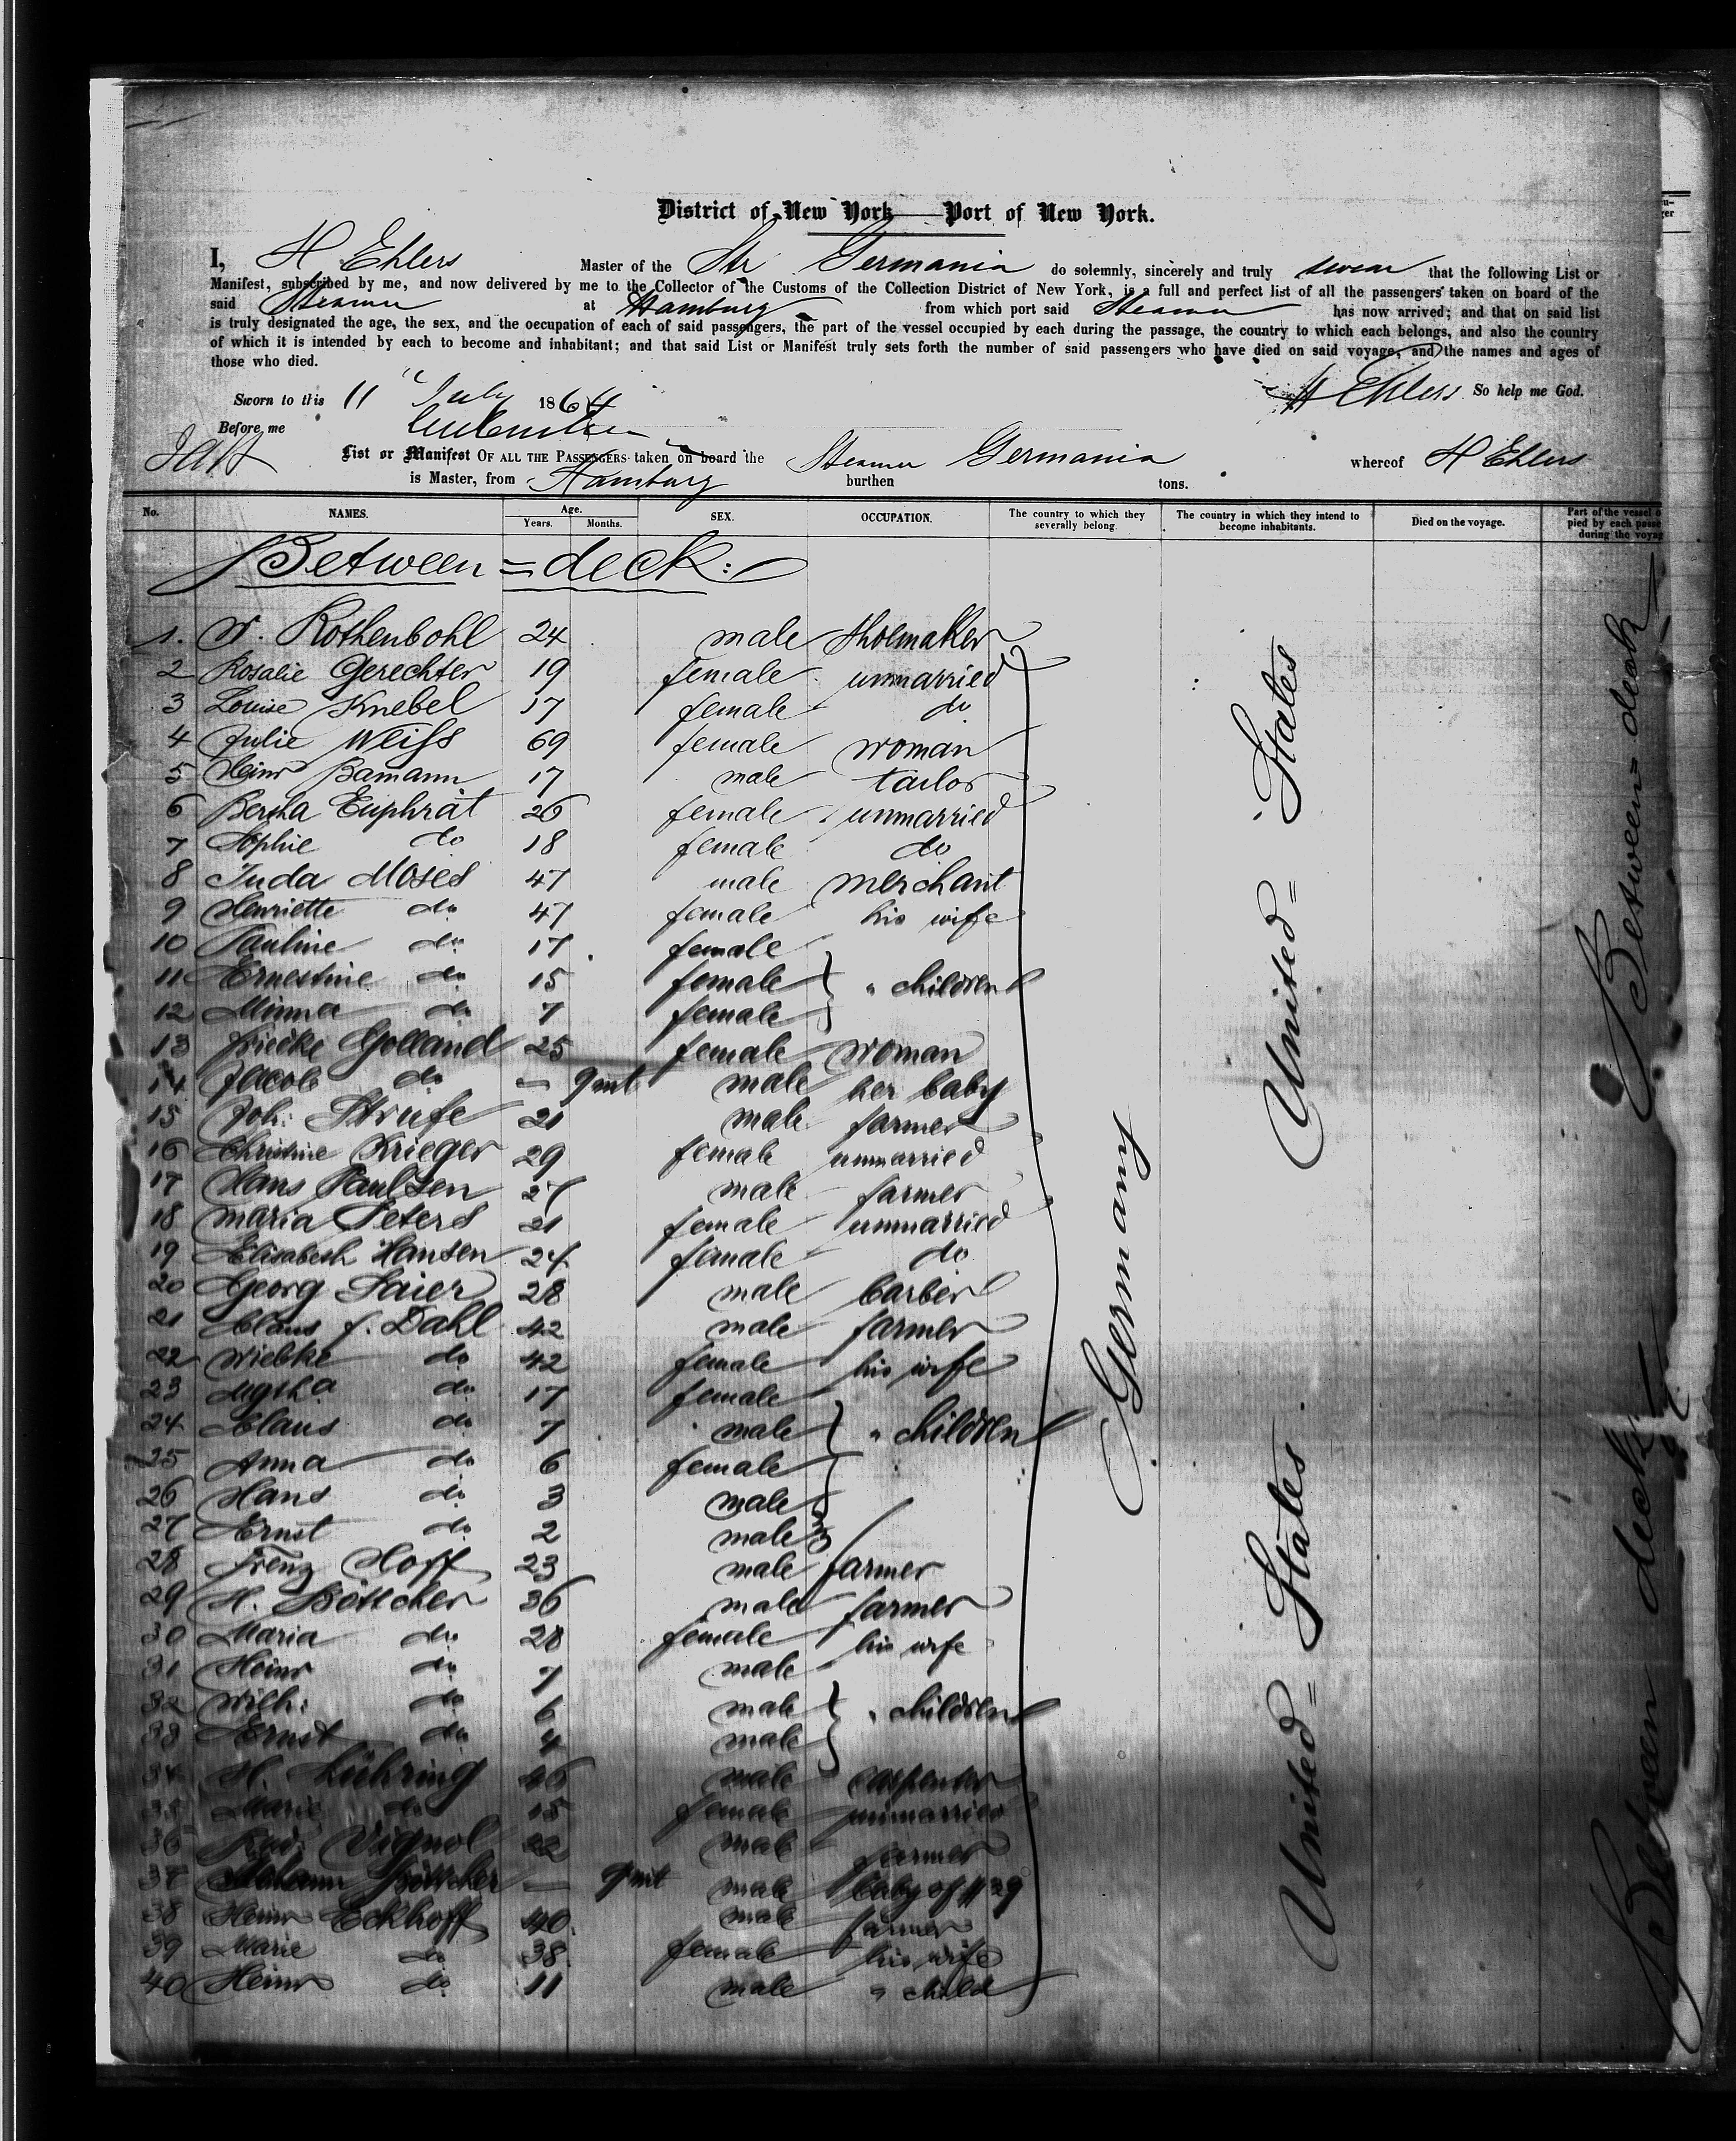 District of New York — Port of New York.
I, H Ehlers Master of the Str Germania do solemnly, sincerely and truly swear that the following List or
Manifest, subscribed by me, and now delivered by me to the Collector of the Customs of the Collection District of New York, is a full and perfect list of all the passengers taken on board of the
said Steamer at Hamburg from which port said Steamer has now arrived; and that on said list
is truly designated the age, the sex, and the occupation of each of said passengers, the part of the vessel occupied by each during the passage, the country to which each belongs, and also the country
of which it is intended by each to become and inhabitant; and that said List or Manifest truly sets forth the number of said passengers who have died on said voyage, and the names and ages of
those who died.
H Ehlers So help me God.
Sworn to this 11 July 1864
Before me
List or Manifest OF ALL THE PASSENGERS taken on board the Steamer Germania whereof H Ehlers
is Master, from Hamburg burthen tons.
No. NAMES. Age. Years. Months. SEX. OCCUPATION. The country to which they severally belong. The country in which they intend to become inhabitants. Died on the voyage. Part of the vessel o pied by each passe during the voyag
Between=deck:
1. Rothenbohl 24 male shoemaker
2 Rosalie Gerechter 19 female unmarried
3 Louise Knebel 17 female do
4 Julie Weiss 69 female woman
5 Heinr Bamann 17 male tailor
6 Bertha Euphrat 26 female unmarried
7 Sophie do 18 female do
8 Juda Moses 47 male merchant
9 Henriette do 47 female his wife
10 Pauline do 17 female
11 Ernestine do 15 female " children
12 Minna do 7 female
13 Friedke Golland 25 female woman
14 Jacob do — 9 mt male her baby
15 Joh: Strufe 21 male farmer
16 Christine Krieger 29 female unmarried
17 Hans Paulsen 27 male farmer
18 Maria Peters 21 female unmarried
19 Elisabeth Hansen 24 female do
20 Georg Saier 28 male barbier
21 Claus f. Dahl 42 male farmer
22 Wiebke do 42 female his wife
23 do 17 female
24 Claus do 7 male " children
25 Anna do 6 female
26 Hans do 3 male
27 Ernst do 2 male
28 Frenz Hoff 23 male farmer
29 H. Böttcher 36 male farmer
30 Maria do 28 female his wife
31 Heinr do 7 male
32 Wilh: do 6 male " children
33 Ernst do 4 male
34 H. Lühring 46 male carpenter
35 Marie do 15 female unmarried
36 Rud: Vignol 22 male farmer
37 Johann Böttcher — 9 mt male baby of # 29
38 Heinr Eckhoff 40 male farmer
39 Marie do 38 female his wife
40 Heinr do 11 male " child
Germany
United=States
United=States
Between=deck
Between deck